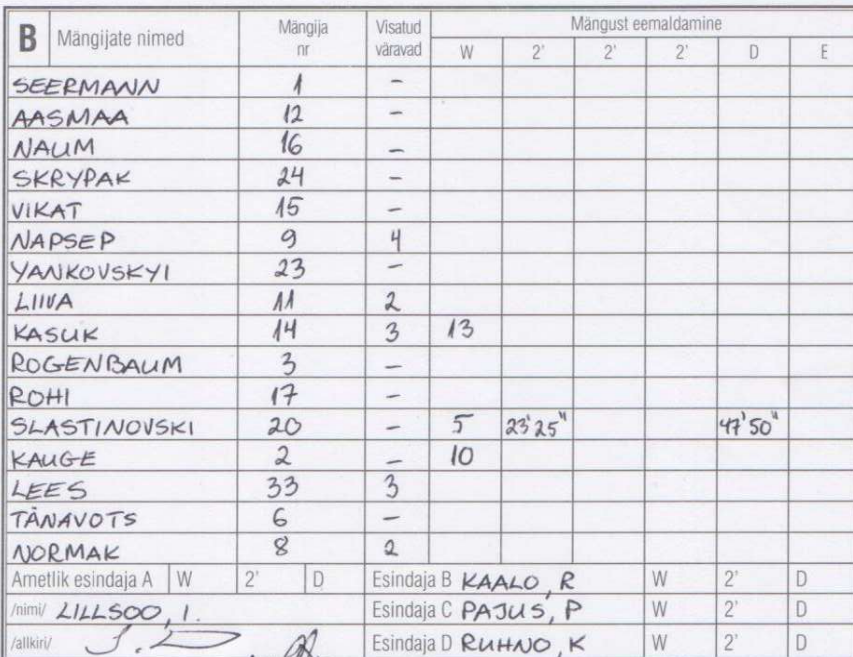 B Mängijate nimed Mängija nr Visatud väravad Mängust eemaldamine
W 2' 2' 2' D E
SEERMANN 1 -
AASMAA 12 -
NAUM 16 -
SKRYPAK 24 -
VIKAT 15 -
NAPSEP 9 4
YANKOVSKYI 23 -
LIIVA 11 2
KASUK 14 3 13
ROGENBAUM 3 -
ROHI 17 -
SLASTINOVSKI 20 - 5 23'25" 47'50"
KAUGE 2 - 10
LEES 33 3
TÄNAVOTS 6 -
NORMAK 8 2
Ametlik esindaja A W 2' D Esindaja B KAALO, R W 2' D
/nimi/ LILLSOO, I. Esindaja C PAJUS, P W 2' D
/allkiri/ Esindaja D RUHNO, K W 2' D